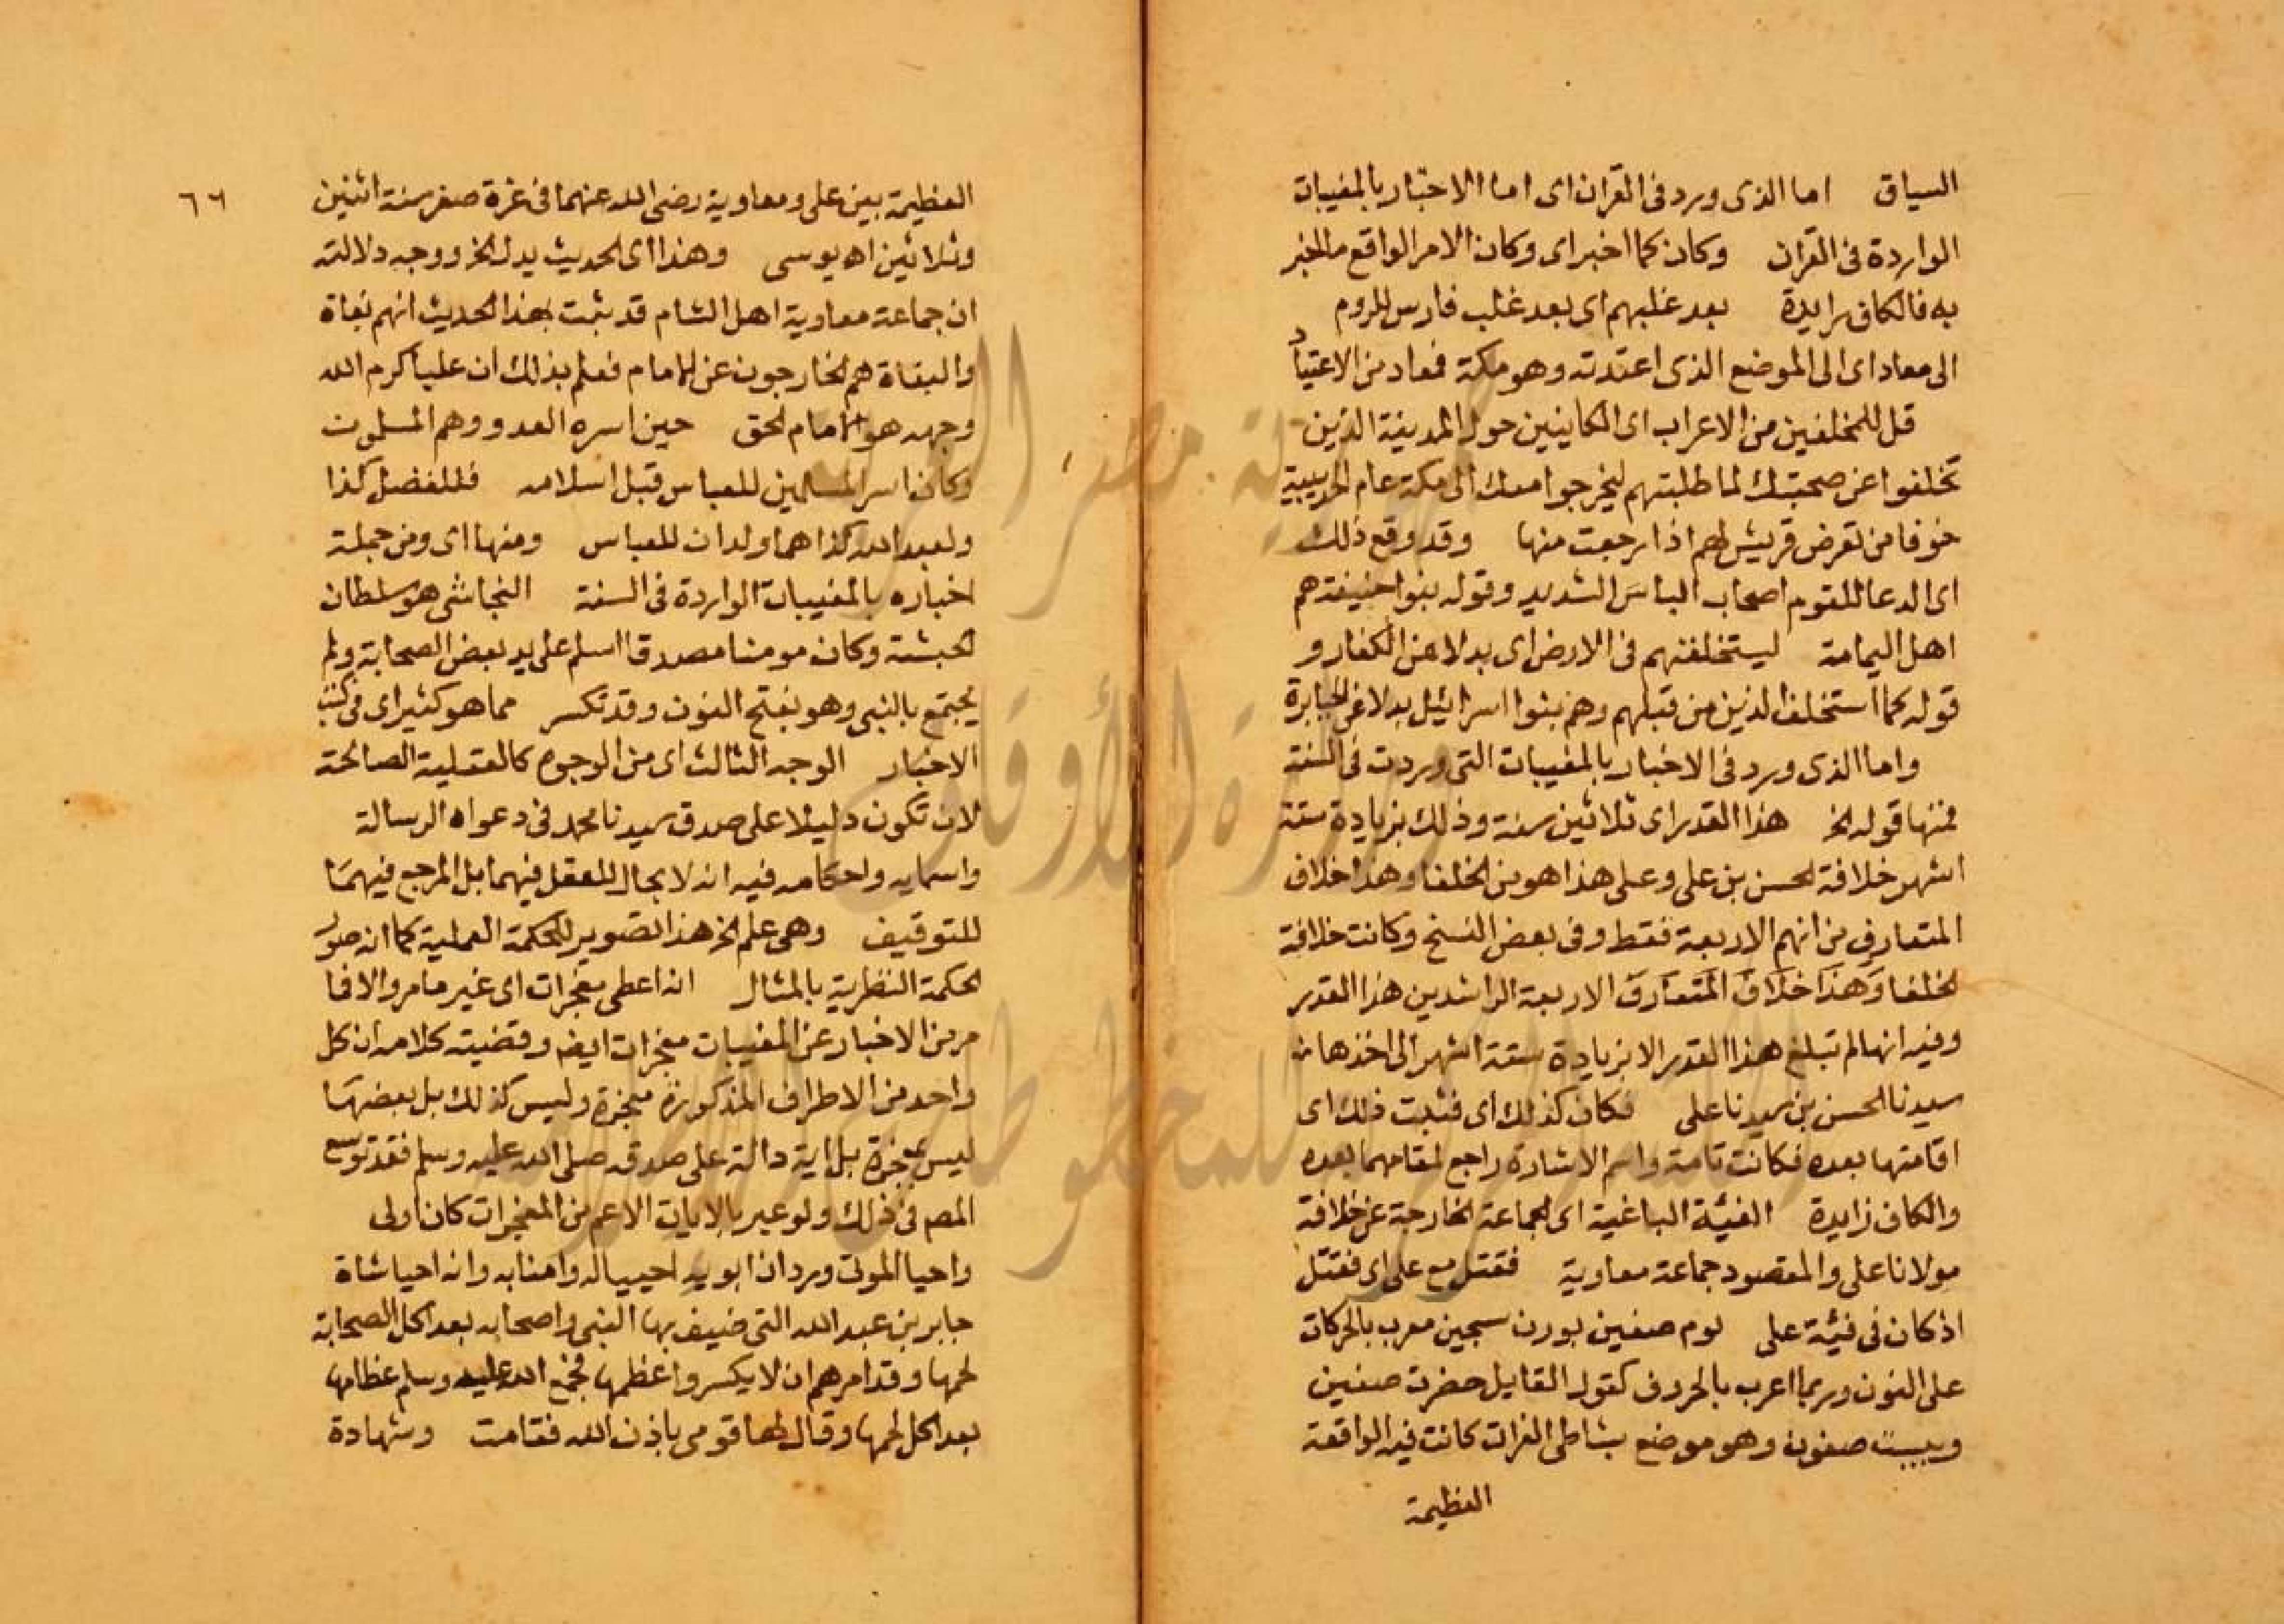 السياق اما الذى ورد فى القران اى اما الاخبار بالمغيبات
الواردة فى القران وكان كما اخبر اى وكان الامر الواقع مالخبر
به فالكاف زايدة بعد غلبهم اى بعد غلب فارس للروم
الى معاد اى الى الموضع الذى اعتدته وهو مكة فمعاد من الاعتياد
قل للمخلفين من الاعراب اى الكاينين حول المدينة الذين
تخلفوا عن صحبتك لما طلبتهم ليخرجوا معك الى مكة عام الحديبية
خوفا من تعرض قريش لهم اذا رجعت منها وقد وقع ذلك
اى الدعا للقوم اصحاب الباس الشديد وقوله بنوا حنيفة هم
اهل اليمامة ليستخلفنهم فى الارض اى بدلا عن الكفار و
قوله كما استخلف الذين من قبلهم وهم بنوا اسرائيل بدلا عن الجبابرة
واما الذى ورد فى الاخبار بالمغيبات التى وردت فى السنة
فمنها قوله الخ هذا القدر اى ثلاثين سنة وذلك بزيادة ستة
اشهر خلافة الحسن بن على وعلى هذا هو من الخلفا وهذا خلاف
المتعارف من انهم الاربعة فقط وفى بعض النسخ وكانت خلافة
الخلفا وهذا خلاف المتعارف الاربعة الراشدين هذا القدر
وفيه انها لم تبلغ هذا القدر الا بزيادة ستة اشهر التى اخذها
سيدنا الحسن بن سيدنا على فكان كذلك اى فثبت ذلك اى
اقامتها بعده فكانت تامة واسم الاشارة راجع لمقامهما بعده
والكاف زايدة الفئية الباغية اى الجماعة الخارجة عن خلافة
مولانا على والمقصود جماعة معاوية فقتل مع على اى فقتل
اذ كان فى فئية على يوم صفين بوزن سجين معرب بالحركات
على النون وربما اعرب بالحروف كقول القايل حضرت صفين
وبيست صفون وهو موضع بشاطى الفرات كانت فيه الواقعة
العظيمة
٦٦
العظيمة بين على ومعاوية رضى الله عنهما فى غرة صفر سنة اثنين
وثلاثين اه يوسى وهذا اى الحديث يدل الخ ووجه دلالته
ان جماعة معاوية اهل الشام قد ثبت بهذا الحديث انهم بغاة
والبغاة هم الخارجون عن الامام فعلم بذلك ان عليا كرم الله
وجهه هو الامام الحق حين اسره العدو وهم المسلمون
وكان اسر المسلمين للعباس قبل اسلامه فللفضل كذا
ولعبد الله كذا هما ولدان للعباس ومنها اى ومن جملة
اخباره بالمغيبات الواردة فى السنة النجاشى هو سلطان
الحبشة وكان مومنا مصدقا اسلم على يد بعض الصحابة ولم
يجتمع بالنبى وهو بفتح النون وقد تكسر مما هو كثير اى فى كتب
الاخبار الوجه الثالث اى من الوجوه كالعقلية الصالحة
لان تكون دليلا على صدق سيدنا محمد فى دعواه الرسالة
واسمايه واحكامه فيه انه لا مجال للعقل فيهما بل المرجع فيهما
للتوقيف وهى علم الخ هذا تصوير للحكمة العملية كما انه صور
الحكمة النظرية بالمثال انه اعطى معجزات اى غير ما مر والا فما
مر من الاخبار عن المغيبات معجزات ايضم وقضية كلامه ان كل
واحد من الاطراف المذكورة معجزة وليس كذلك بل بعضها
ليس معجزة بل اية دالة على صدقه صلى الله عليه وسلم فقد توسع
المصم فى ذلك ولو عبر بالايات الاعم من المعجزات كان اولى
واحيا الموتى ورد ان ابويه احييا له وامنا به وانه احيا شاة
جابر بن عبد الله التى ضيف بها النبى واصحابه بعد اكل الصحابة
لحمها وقد امرهم ان لا يكسروا عظمها فجمع الله عليه وسلم عظامها
بعد اكل لحمها وقال لها قومى باذن الله فقامت وشهادة